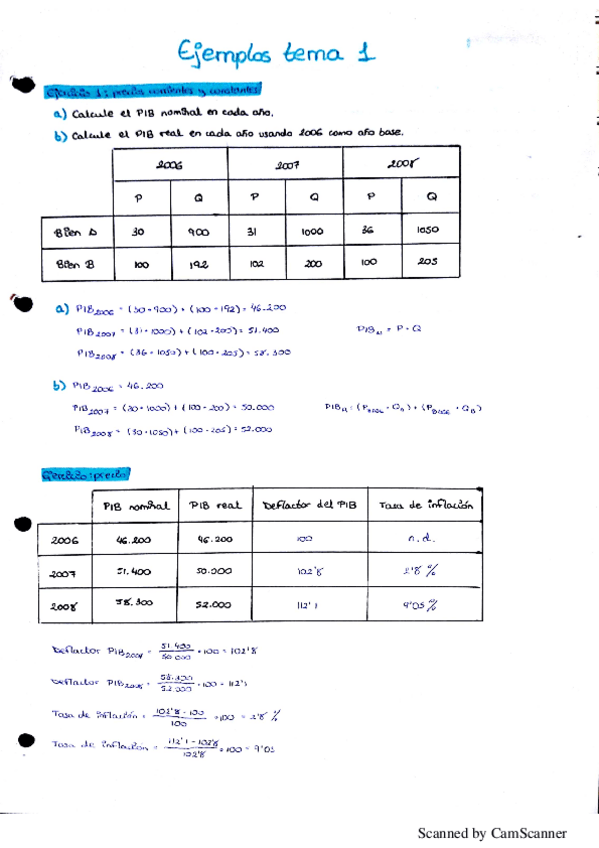 Ejemplos tema 1
Ejercicio 1: precios corrientes y constantes
a) Calcule el PIB nominal en cada año.
b) Calcule el PIB real en cada año usando 2006 como año base.
2006 2007 2008
P Q P Q P Q
Bien A 30 900 31 1000 36 1050
Bien B 100 192 102 200 100 205
a) PIB2006 = (30·900) + (100·192) = 46.200
PIB2007 = (31·1000) + (102·205) = 51.400 PIBN = P·Q
PIB2008 = (36·1050) + (100·205) = 58.300
b) PIB2006 = 46.200
PIB2007 = (30·1000) + (100·200) = 50.000 PIBR: (PBASE · QA) + (PBASE · QB)
PIB2008 = (30·1050) + (100·205) = 52.000
Ejercicio: precio
PIB nominal PIB real Deflactor del PIB Tasa de inflación
2006 46.200 46.200 100 n.d.
2007 51.400 50.000 102'8 2'8 %
2008 58.300 52.000 112'1 9'05 %
Deflactor PIB2007 = 51.400 / 50.000 · 100 = 102'8
Deflactor PIB2008 = 58.300 / 52.000 · 100 = 112'1
Tasa de inflación = 102'8 - 100 / 100 · 100 = 2'8 %
Tasa de inflación = 112'1 - 102'8 / 102'8 · 100 = 9'05
Scanned by CamScanner